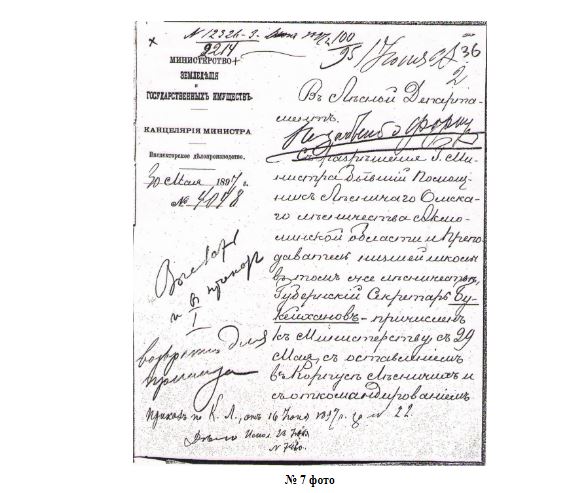 № 12326-3.
2214
100
95
36
2
МИНИСТЕРСТВО
ЗЕМЛЕДѢЛІЯ
И
ГОСУДАРСТВЕННЫХЪ ИМУЩЕСТВЪ.
КАНЦЕЛЯРІЯ МИНИСТРА.
Инспекторское дѣлопроизводство.
30 Мая 1897 г.
№ 4078
Въ Лѣсной Департа-
ментъ.
Съ разрѣшенія Г. Ми-
нистра бывшій Помощ-
никъ Лѣсничаго Омска-
го лѣсничества Акмо-
линской области и Препо-
даватель низшей школы
въ томъ же лѣсничествѣ,
Губернскій Секретарь Бу-
кейхановъ - причисленъ
къ Министерству, съ 29
Мая, съ оставленіемъ
въ Корпусѣ Лѣсничихъ и
съ откомандированіемъ
и въ
I
возвратить для
приказа
Приказъ по К. Л., отъ 16 Іюня 1897 г. за № 22.
№ 7 фото